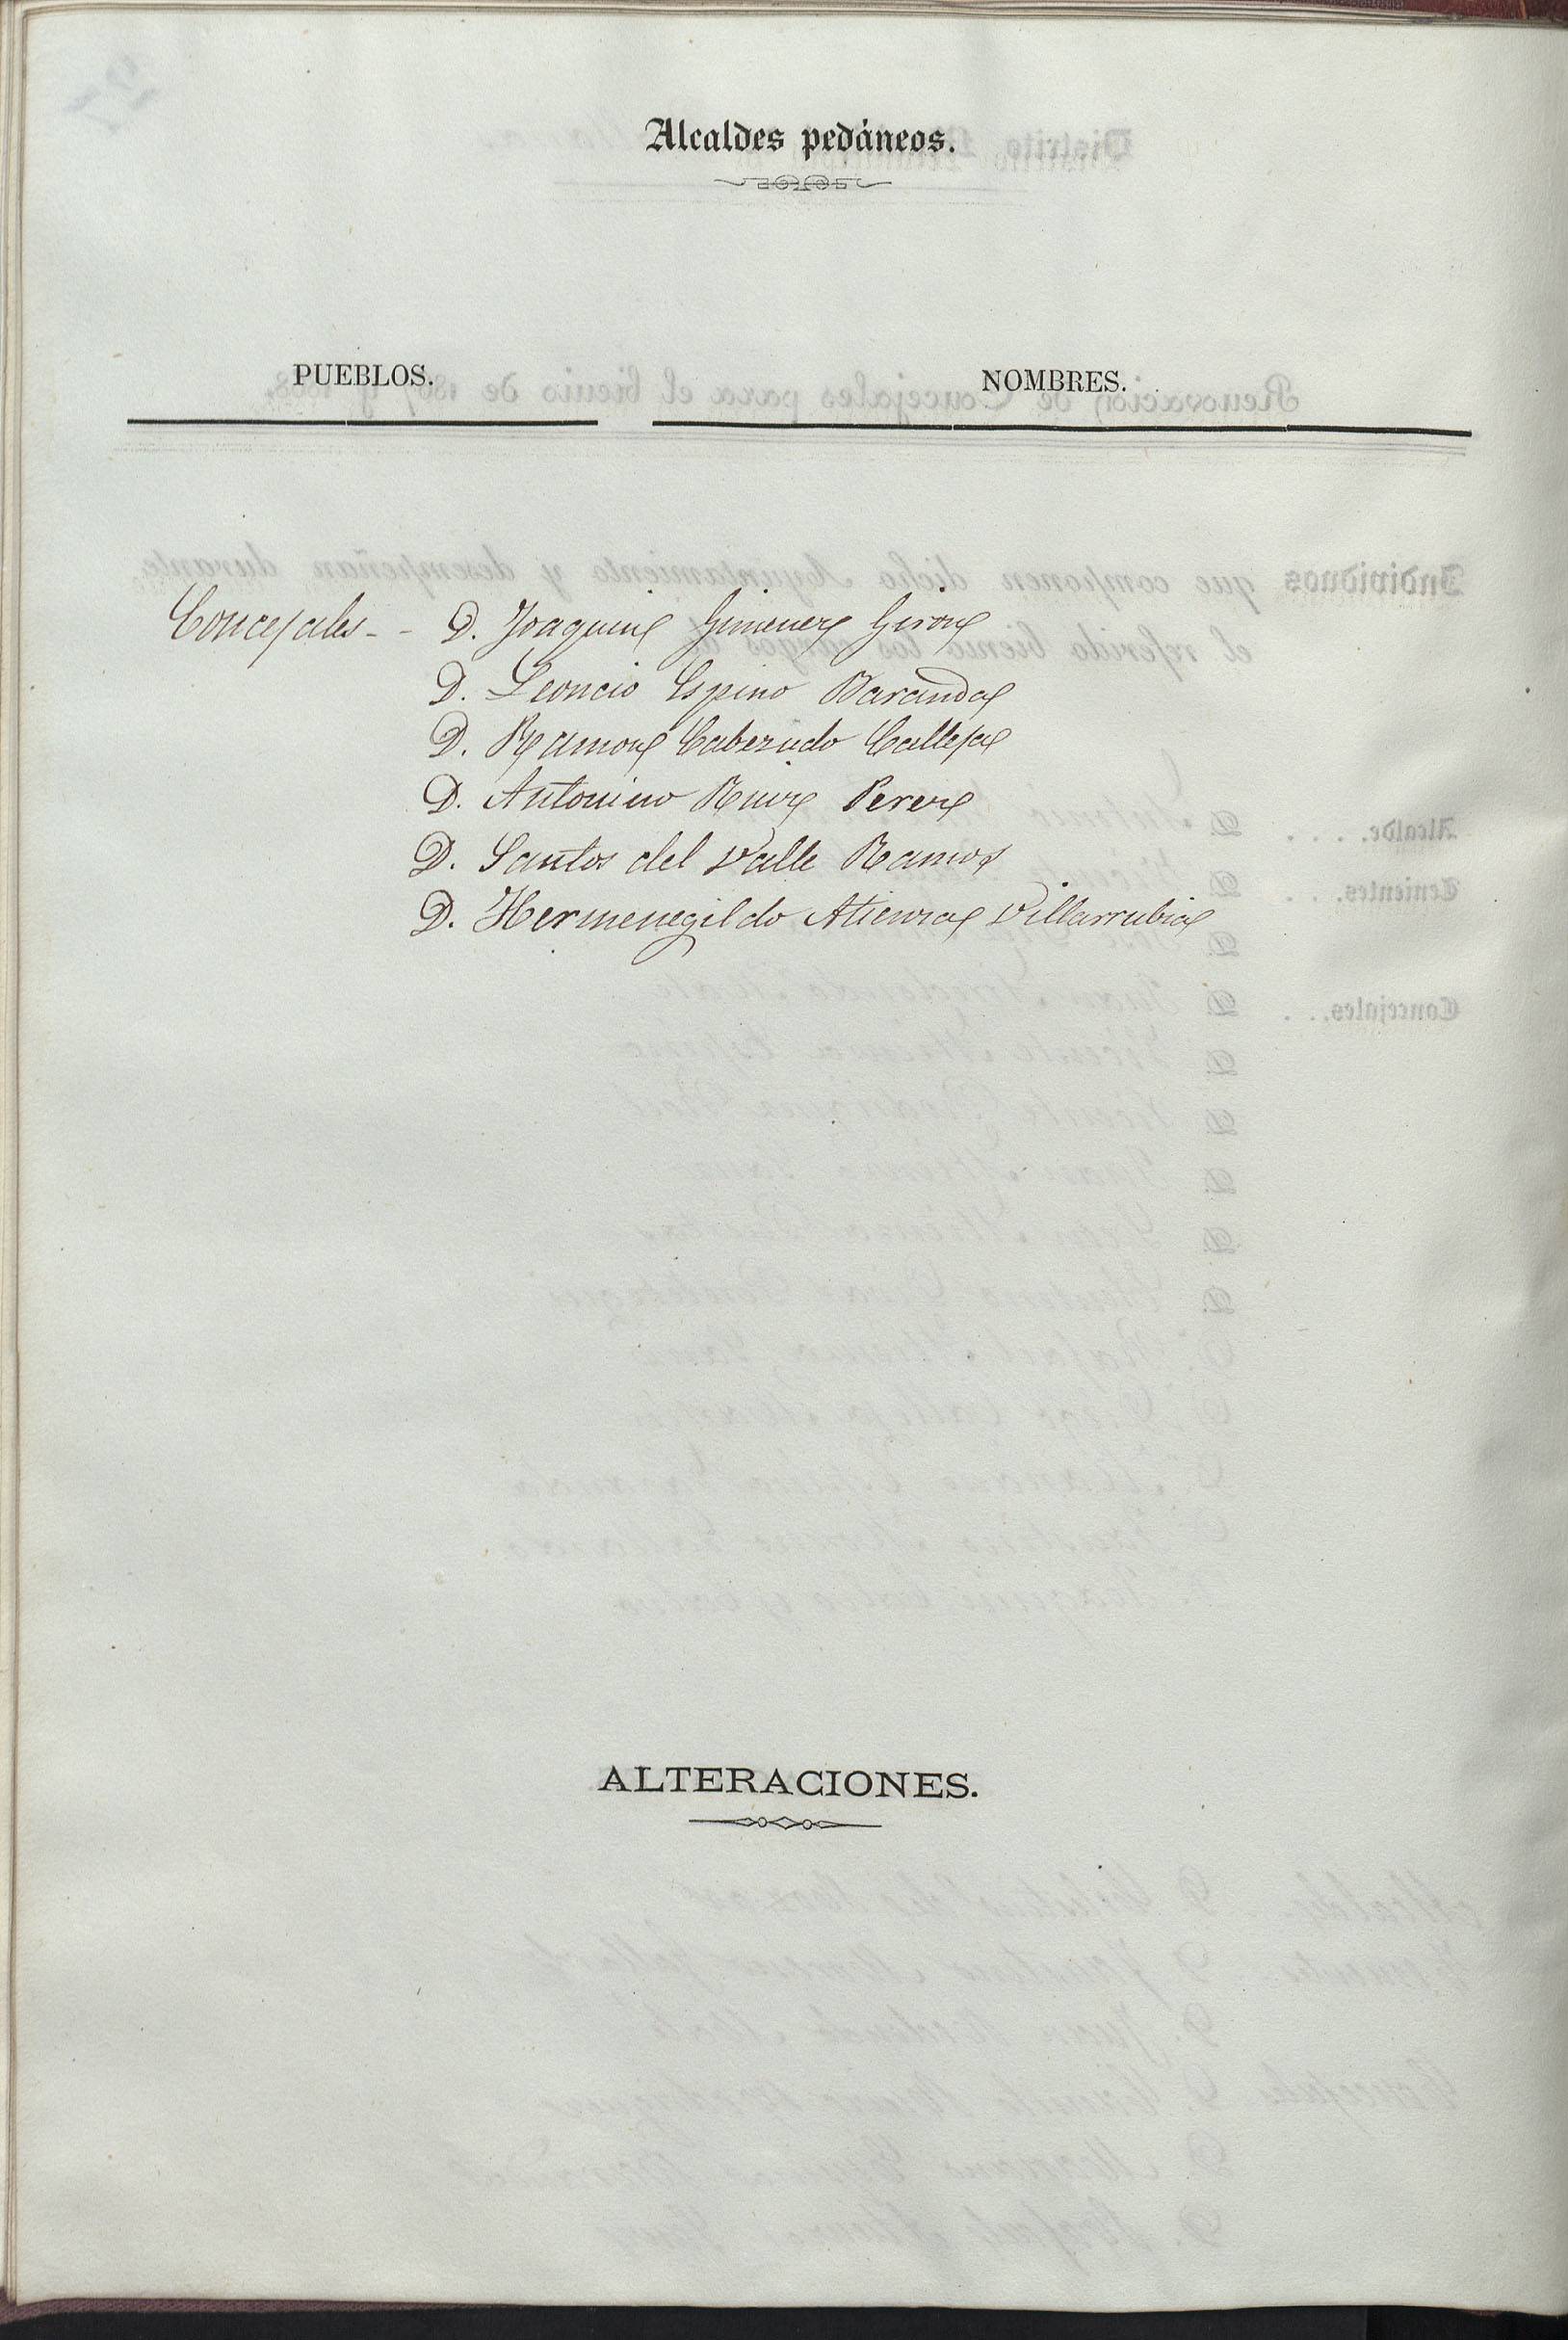 Alcaldes pedáneos.
PUEBLOS. NOMBRES.
Concejales - - D. Joaquin Gimenez Giron
D. Leoncio Espino Baranda
D. Ramon Cabezudo Calleja
D. Antonino Ruiz Perez
D. Santos del Valle Ramos
D. Hermenegildo Atienza Villarrubia
ALTERACIONES.